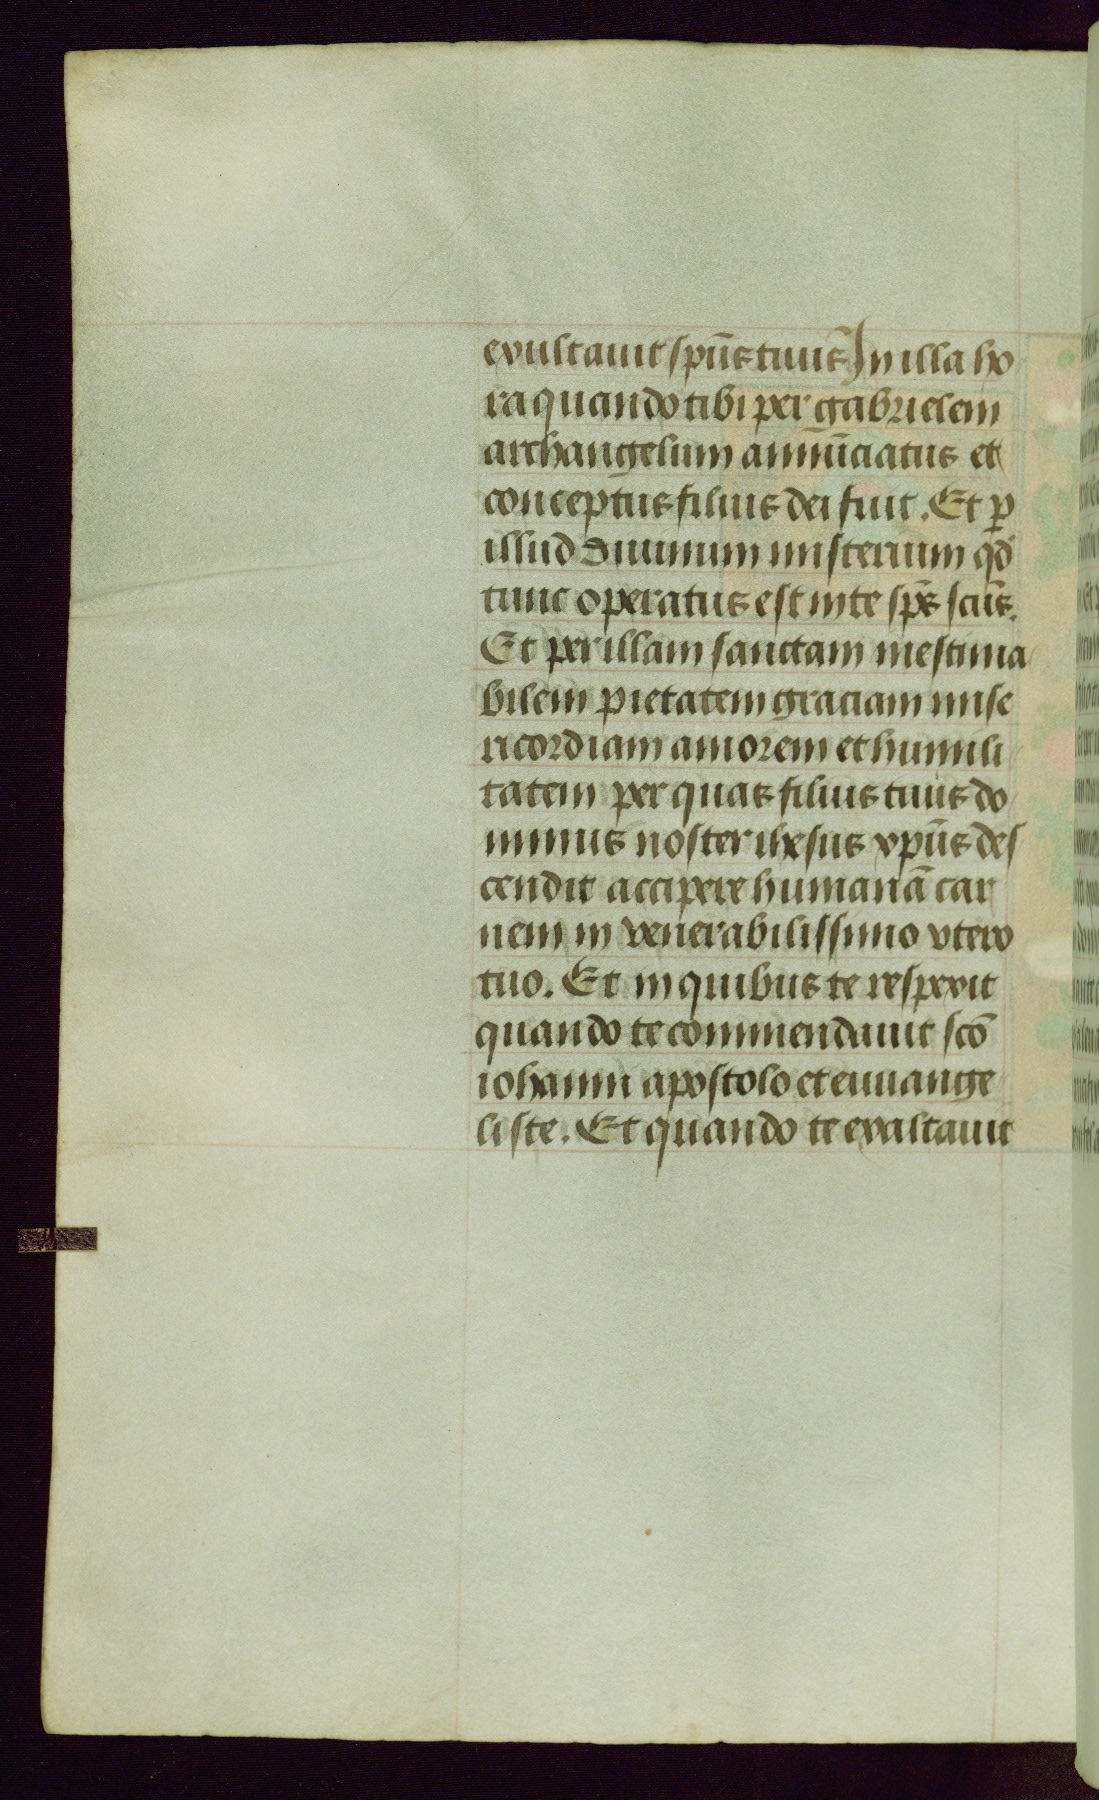 exultauit spūs tuus In illa ho
ra quando tibi per gabrielem
archangelum annūciatus et
conceptus filius dei fuit. Et ꝑ
illud diuinum misterium qd̄
tunc operatus est in te sp̄s scūs.
Et per illam sanctam inestima
bilem pietatem graciam mise
ricordiam amorem et humili
tatem per quas filius tuus do
minus noster ihesus xpūs des
cendit accipere humanā car
nem in venerabilissimo vtero
tuo. Et in quibus te respexit
quando te commendauit scō
iohanni apostolo et euuange
liste. Et quando te exaltauit